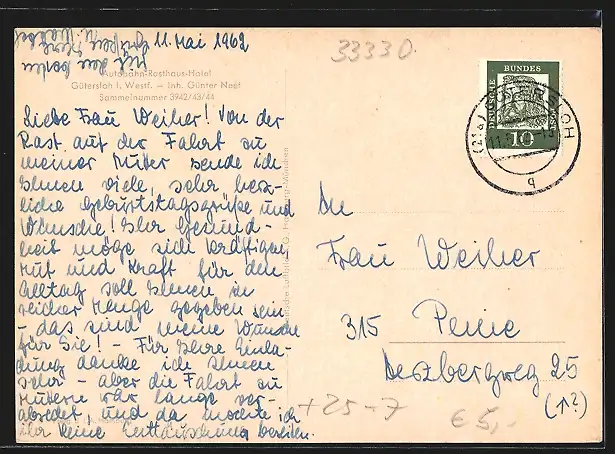 11. Mai 1962
33330
Autobahn-Rasthaus-Hotel
Gütersloh I. Westf. — Inh. Günter Neef
Sammelnummer 3942/43/44
Liebe Frau Weiher! Von der
Rast auf der Fahrt zu
meiner Mutter sende ich
Ihnen viele, sehr herz-
liche Geburtstagsgrüße und
Wünsche! Ihr Gesund-
heit möge sich kräftigen
Mut und Kraft für den
Alltag soll Ihnen in
reicher Menge gegeben sein
- das sind meine Wünsche
für Sie! - Für Ihre Einla-
dung danke ich Ihnen
sehr - aber die Fahrt zu
Muttern war lange ver-
abredet, und da mochte ich
ihr keine Enttäuschung bereiten.
Mit den besten
Grüßen Ihre
DEUTSCHE BUNDESPOST
10
(21a) GÜTERSLOH
q
An
Frau Weiher
315 Peine
Herzbergweg 25
(↑2)
+25-7
€5,-